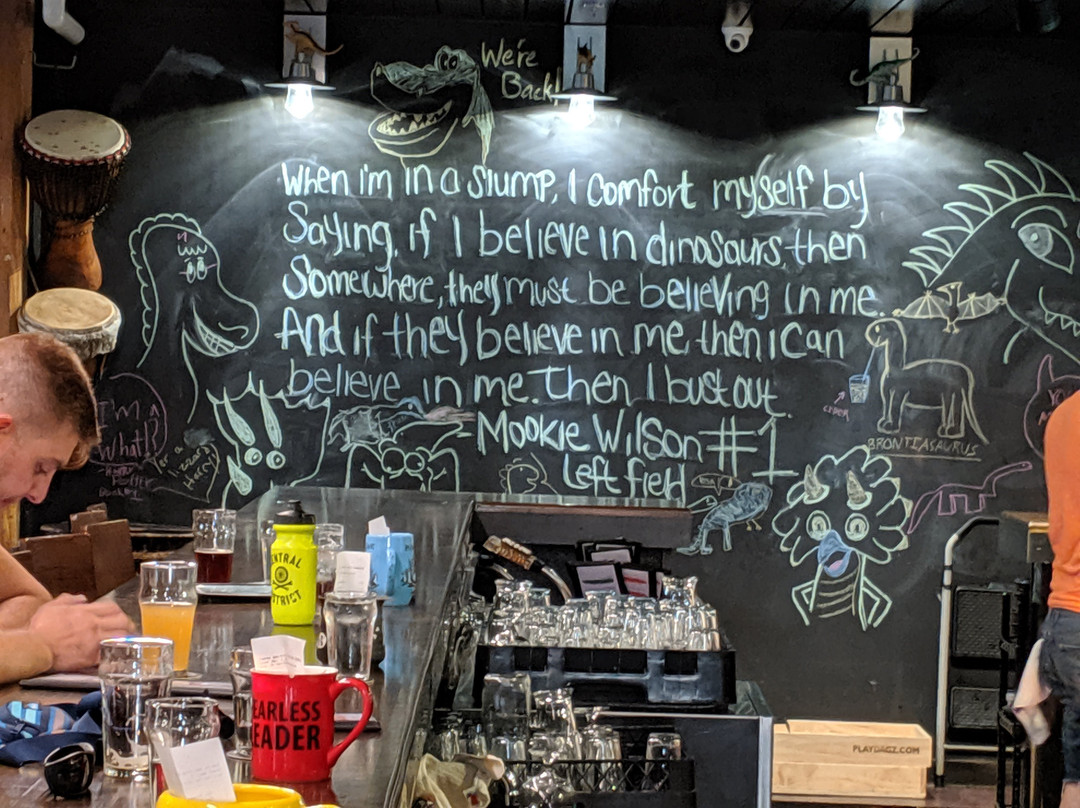 We're
Back!
When i'm in a slump, I comfort myself by
Saying, if I believe in dinosaurs, then
Somewhere, they must be believing in me.
And if they believe in me, then i can
believe in me. Then I bust out.
Mookie Wilson #1
Left field
I'm A
What!?
for a
lizard
Harry!
CIDER
BRONTIASAURUS
CENTRAL
DISTRICT
EARLESS
EADER
PLAYDAGZ.COM